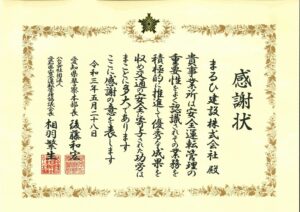 感謝状
まるひ建設株式会社 殿
貴事業所は安全運転管理の
重要性をよく認識されその業務を
積極的に推進して優秀な成果を
収め交通の安全に寄与された功労は
まことに多大であります
ここに感謝の意を表します
令和三年五月二十八日
愛知県警察本部長 後藤和宏
公益社団法人
愛知県安全運転管理協議会長 相羽繁生